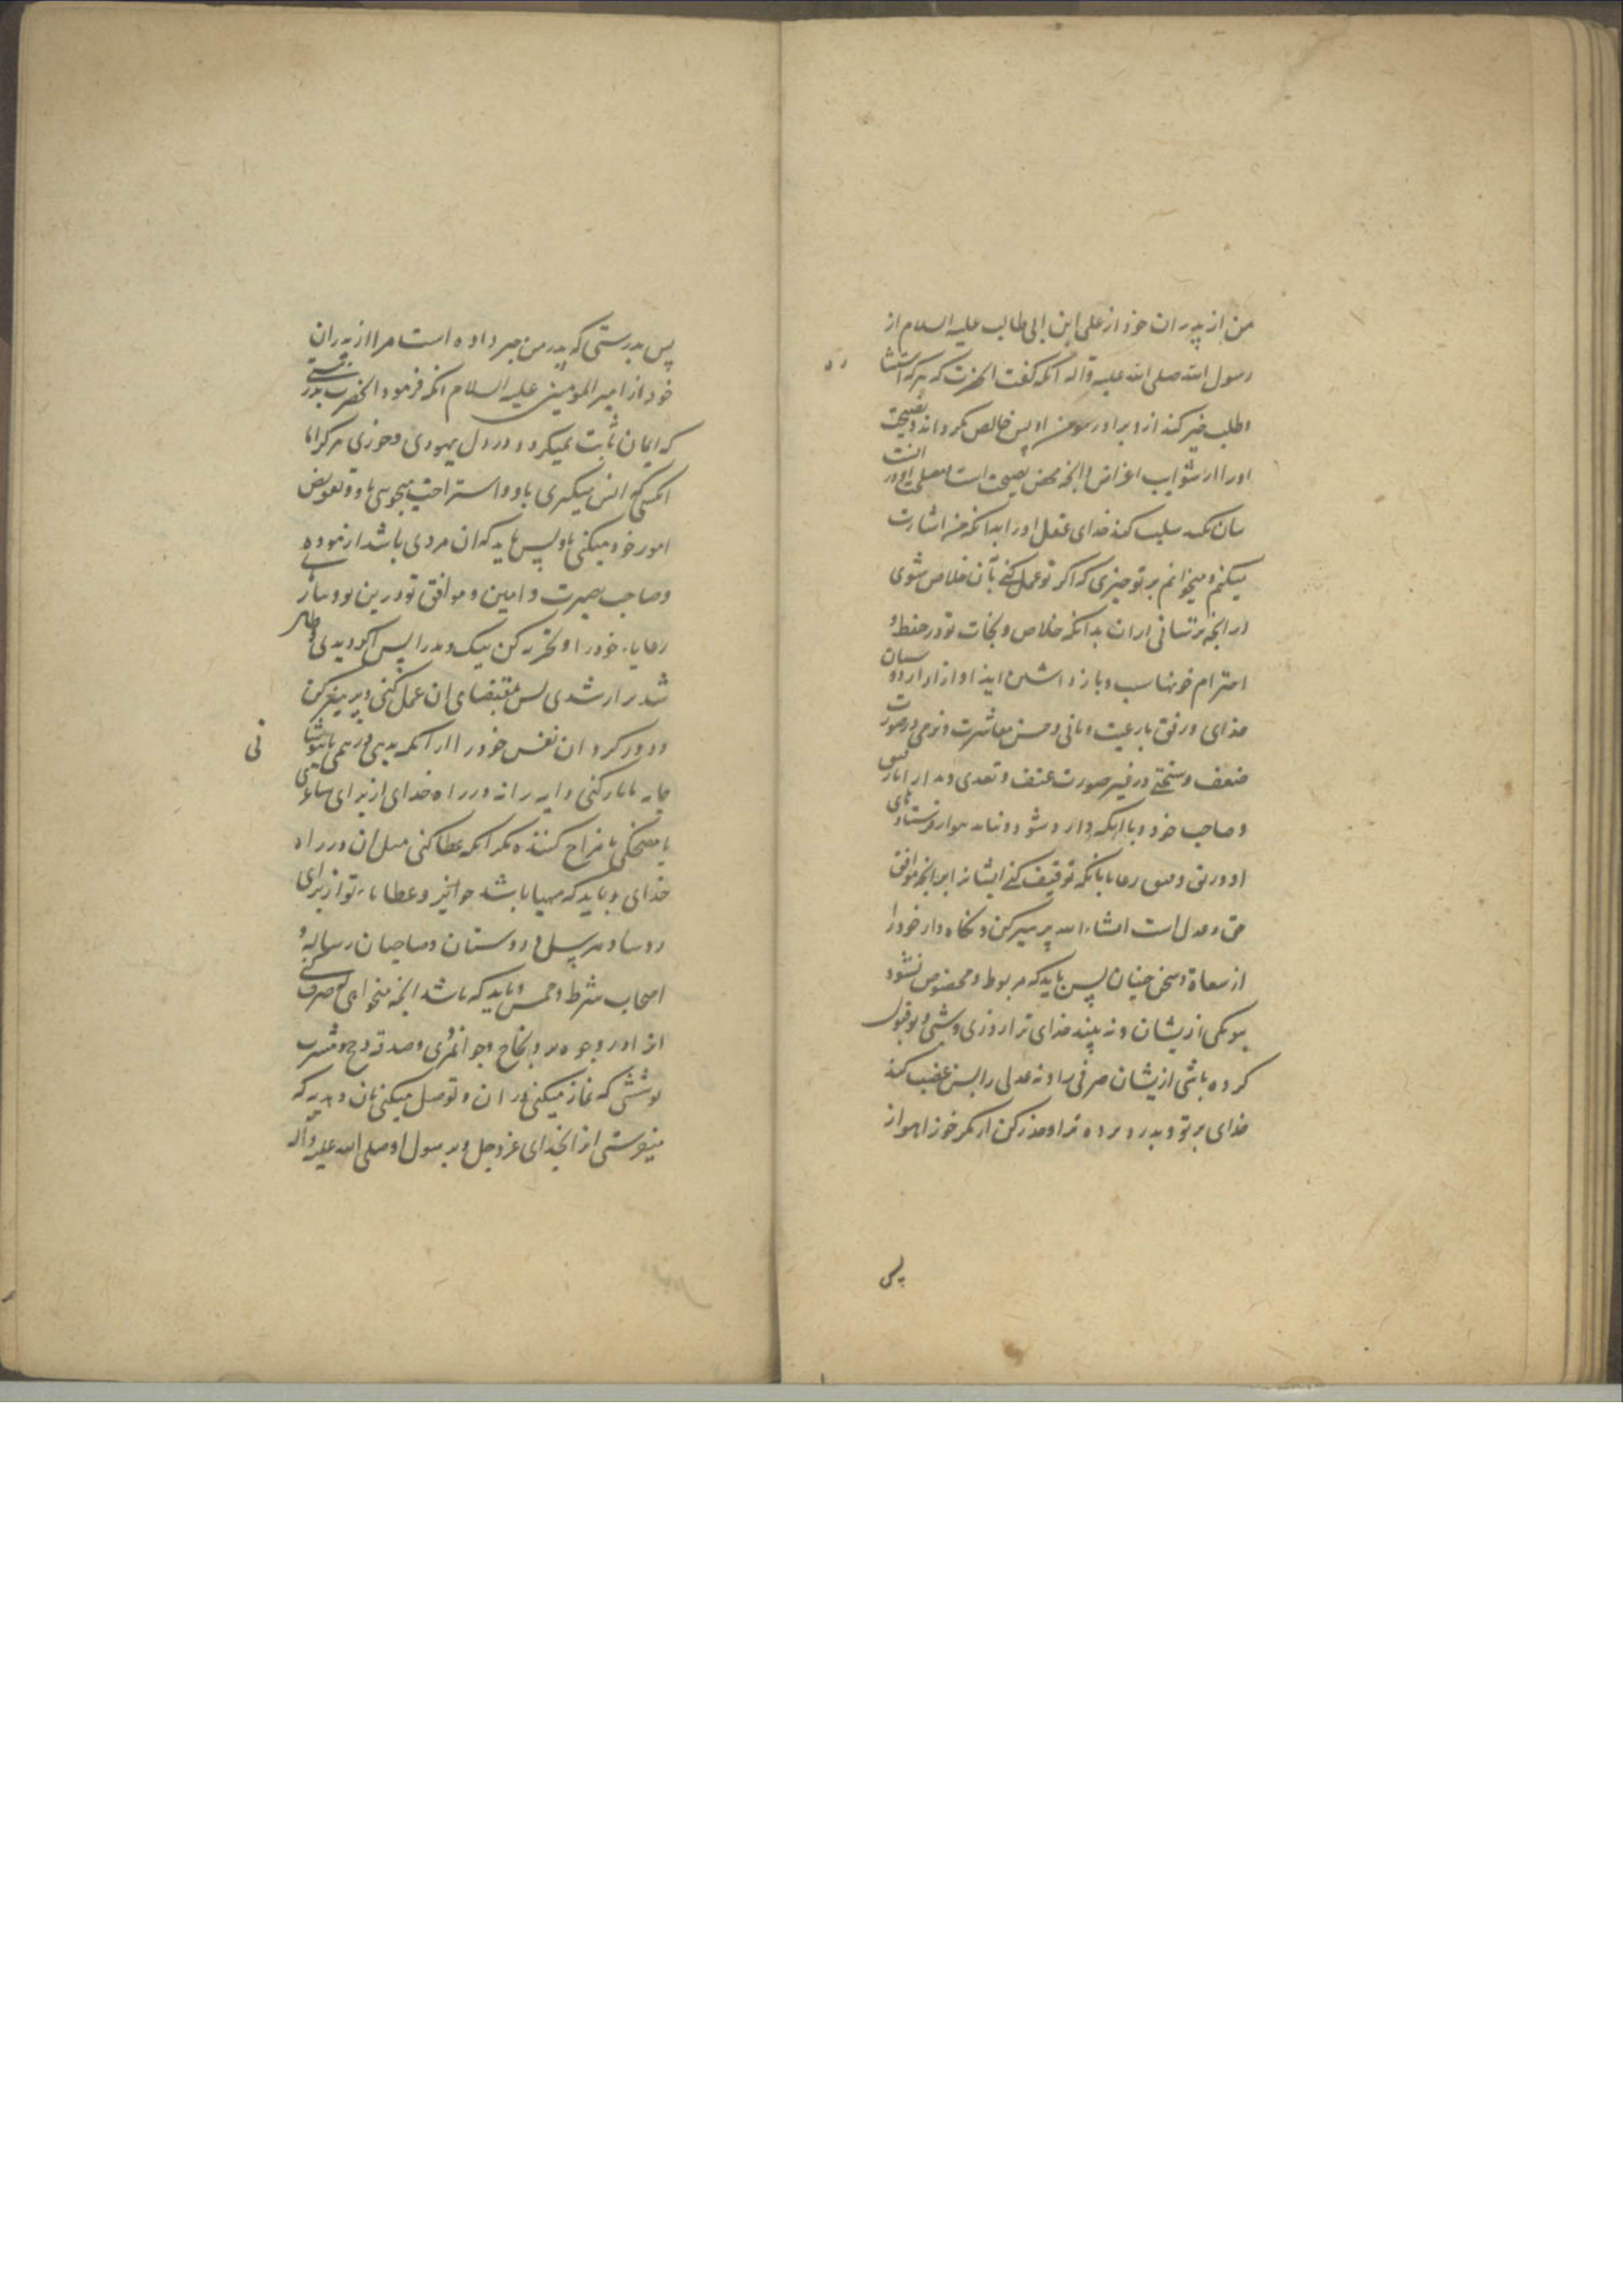 من از پدران خود از علی ابن ابی طالب علیه السلام از
رسول الله صلی الله علیه وآله آنکه گفت آنحضرت که هر که استشا
ره
وطلب خیر کند ازو برادر مومن او پس خالص نکرداند نصیحت
اورا از شوایب اغراض وانچه محض نصیحت است
سلب کند خدای عقل اورا بدانکه من اشارت
میکنم و میخوانم بر تو چیزی که اگر تو عمل کنی بآن خلاص شوی
از انچه ترسانی از ان بدانکه خلاص و نجات تو در حفظ و
احترام خونهاست و باز داشتن ایذا و ازار از دوستان
خدای و رفق با رعیت و تانی و حسن معاشرت و نرمی در صورت
ضعف و سختی در غیر صورت عنف و تعدی و مدارا با رفیق
و صاحب خود و با آنکه وارد شود از فرستادهای
او و رفق رعایا بانکه توقیف کنی ایشانرا بر انچه موافق
حق و عدل است انشاء الله پرهیز کن و نگاه دار خود را
از سعاة و سخن چینان پس باید که مربوط و مخصوص نشود
بتو یکی ازیشان و نه بیند خدای ترا روزی و شبی و تو قبول
کرده باشی ازیشان صرفی را و نه عدلی را پس غضب کند
خدای بر تو و بدرد پرده ترا و حذر کن از مکر خوز اهواز
پس
پس بدرستی که پدر من خبر داده است مرا از پدران
خود از امیر المومنین علیه السلام آنکه فرمود آنحضرت بدرستی
که ایمان ثابت نمیکردد در دل یهودی و خوزی هرگز اما
آنکسی که انس میکیری باو و استراحت میجویی باو و تفویض
امور خود میکنی باو پس باید که ان مردی باشد ازموده
و صاحب بصیرت و امین و موافق تو در دین تو و
رعایاء خود را و تجربه کن نیک و بد را پس اگر دیدی و ظاهر
شد بر ارشدی پس بمقتضای ان عمل کنی و پرهیز کن
و دور کردان نفس خود را از آنکه بدهی درهمی یا بپوشا
نی
جامه یا بار کنی دابه را نه در راه خدای از برای شاعری
یا مضحکی یا مزاح کننده مگر آنکه عطا کنی مثل ان در راه
خدای و باید که مهیا باشد جوایز و عطایاء تو از برای
روسا و دوستان و صاحبان رساله و
اصحاب شرط و خمس و باید که باشد انچه میخواهی که صرف کنی
انرا در وجوه بر و نجاح و جوانمردی و صدقه و حج و مشرب
پوششی که نماز میکنی در ان و توصل میکنی بان و هدیه که
میفرستی انرا بخدای عز وجل و بر رسول او صلی الله علیه وآله